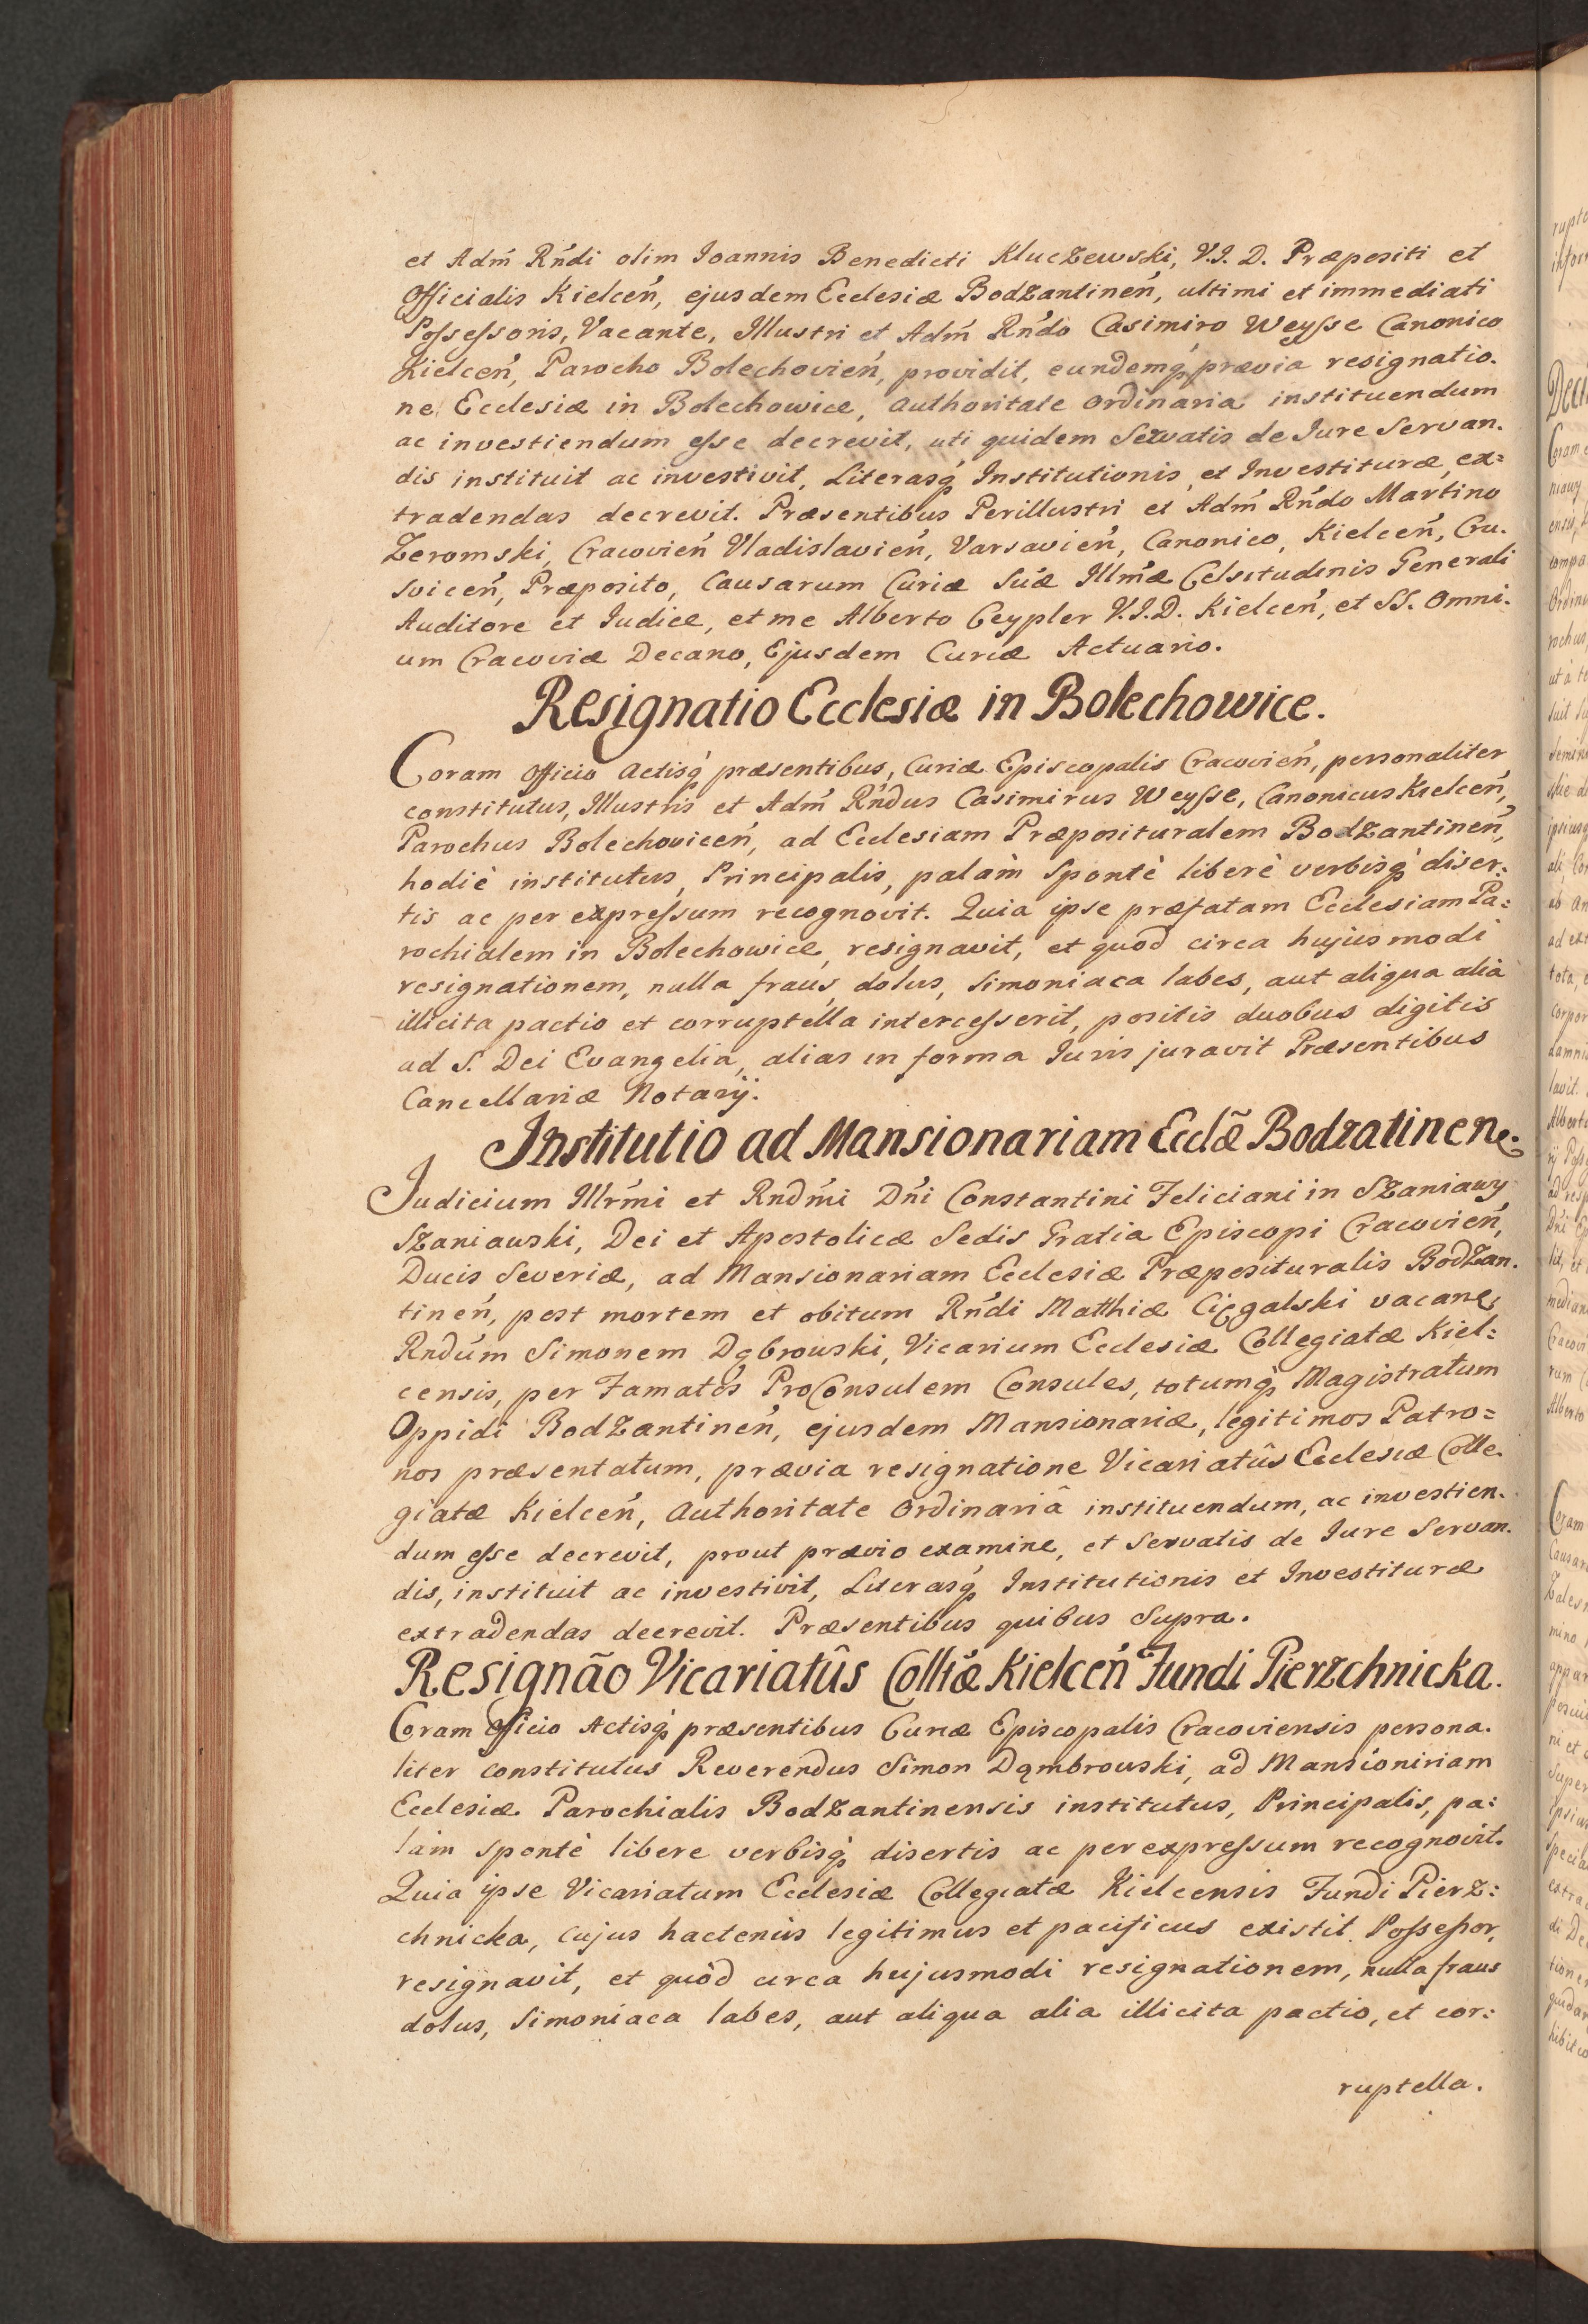 et Adm̃ Rńdi olim Ioannis Benedicti Kluczewski, V.I.D. Præpositi et
Officialis Kielceń, ejusdem Ecclesiæ Bodzantineń, ultimi et immediati
Possessoris, Vacante, Illustri et Adm̃ Rńdo Casimiro Weysse Canonico
Kielceń, Parocho Bolechovień, providit, eundemq́ prævia resignatio.
ne Ecclesiæ in Bolechowice, authoritate ordinaria instituendum
ac investiendum esse decrevit, uti quidem Servatis de Jure Servan.
dis instituit ac investivit, Literasq́ Institutionis et Investituræ ex=
tradendas decrevit. Præsentibus Perillustri et Adm̃ Rńdo Martino
Zeromski, Cracovień Vladislavień, Varsavień, Canonico, Kielceń, Cru.
sviceń, Præposito, Causarum Curiæ Suæ Illm̃æ Celsitudinis Generali
Auditore et Iudice, et me Alberto Ceypler V.I.D. Kielceń, et SS. Omni.
um Cracoviæ Decano, Ejusdem Curiæ Actuario.
Resignatio Ecclesiæ in Bolechowice.
Coram officio Actisq́ præsentibus, Curiæ Episcopalis Cracovień, personaliter
constitutus, Illustris et Adm̃ Rńdus Casimirus Weysse, Canonicus Kielceń,
Parochus Bolechoviceń, ad Ecclesiam Præposituralem Bodzantineń,
hodiè institutus, Principalis, palàm Spontè liberè verbisq́ diser:
tis ac per expressum recognovit. Quia ipse præfatam Ecclesiam Pa:
rochialem in Bolechowice, resignavit, et quòd circa hujusmodi
resignationem, nulla fraus, dolus, Simoniaca labes, aut aliqua alia
illicita pactio et corruptella intercesserit, positis duobus digitis
ad S. Dei Evangelia, alias in forma Iuris juravit Præsentibus
Cancellariæ Notarÿ.
Institutio ad Mansionariam Ecclæ̃ Bodzatinene.
Judicium Illrm̃i et Rndm̃i Dńi Constantini Feliciani in Szaniawy
Szaniawski, Dei et Apostolicæ Sedis Gratia Episcopi Cracovień,
Ducis Severiæ, ad Mansionariam Ecclesiæ Præposituralis Bodzan.
tineń, post mortem et obitum Rńdi Matthiæ Cięgalski vacane,
Rndúm Simonem Dąbrowski, Vicarium Ecclesiæ Collegiatæ Kiel:
censis, per Famatos ProConsulem Consules, totumq́ Magistratum
Oppidi Bodzantineń, ejusdem Mansionariæ, legitimos Patro=
nos præsentatum, prævia resignatione Vicariatûs Ecclesiæ Colle.
giatæ Kielceń, Authoritate Ordinariâ instituendum, ac investien.
dum esse decrevit, prout prævio examine, et Servatis de Iure Servan.
dis, instituit ac investivit, Literasq́ Institutionis et Investituræ
extradendas decrevit. Præsentibus quibus Supra.
Resignão Vicariatûs Colltæ Kielceń Fundi Pierzchnicka.
Coram officio Actisq́ præsentibus Curiæ Episcopalis Cracoviensis persona.
liter constitutus Reverendus Simon Dąmbrowski, ad Mansioniriam
Ecclesiæ Parochialis Bodzantinensis institutus, Principalis, pa:
làm spontè libere verbisq́ disertis ac per expressum recognovit.
Quia ipse Vicariatum Ecclesiæ Collegiatæ Kielcensis Fundi Pierz:
chnicka, cujus hactenùs legitimus et pacificus existit Possessor,
resignavit, et quòd circa hujusmodi resignationem, nulla fraus
dolus, Simoniaca labes, aut aliqua alia illicita pactio, et cor:
ruptella.